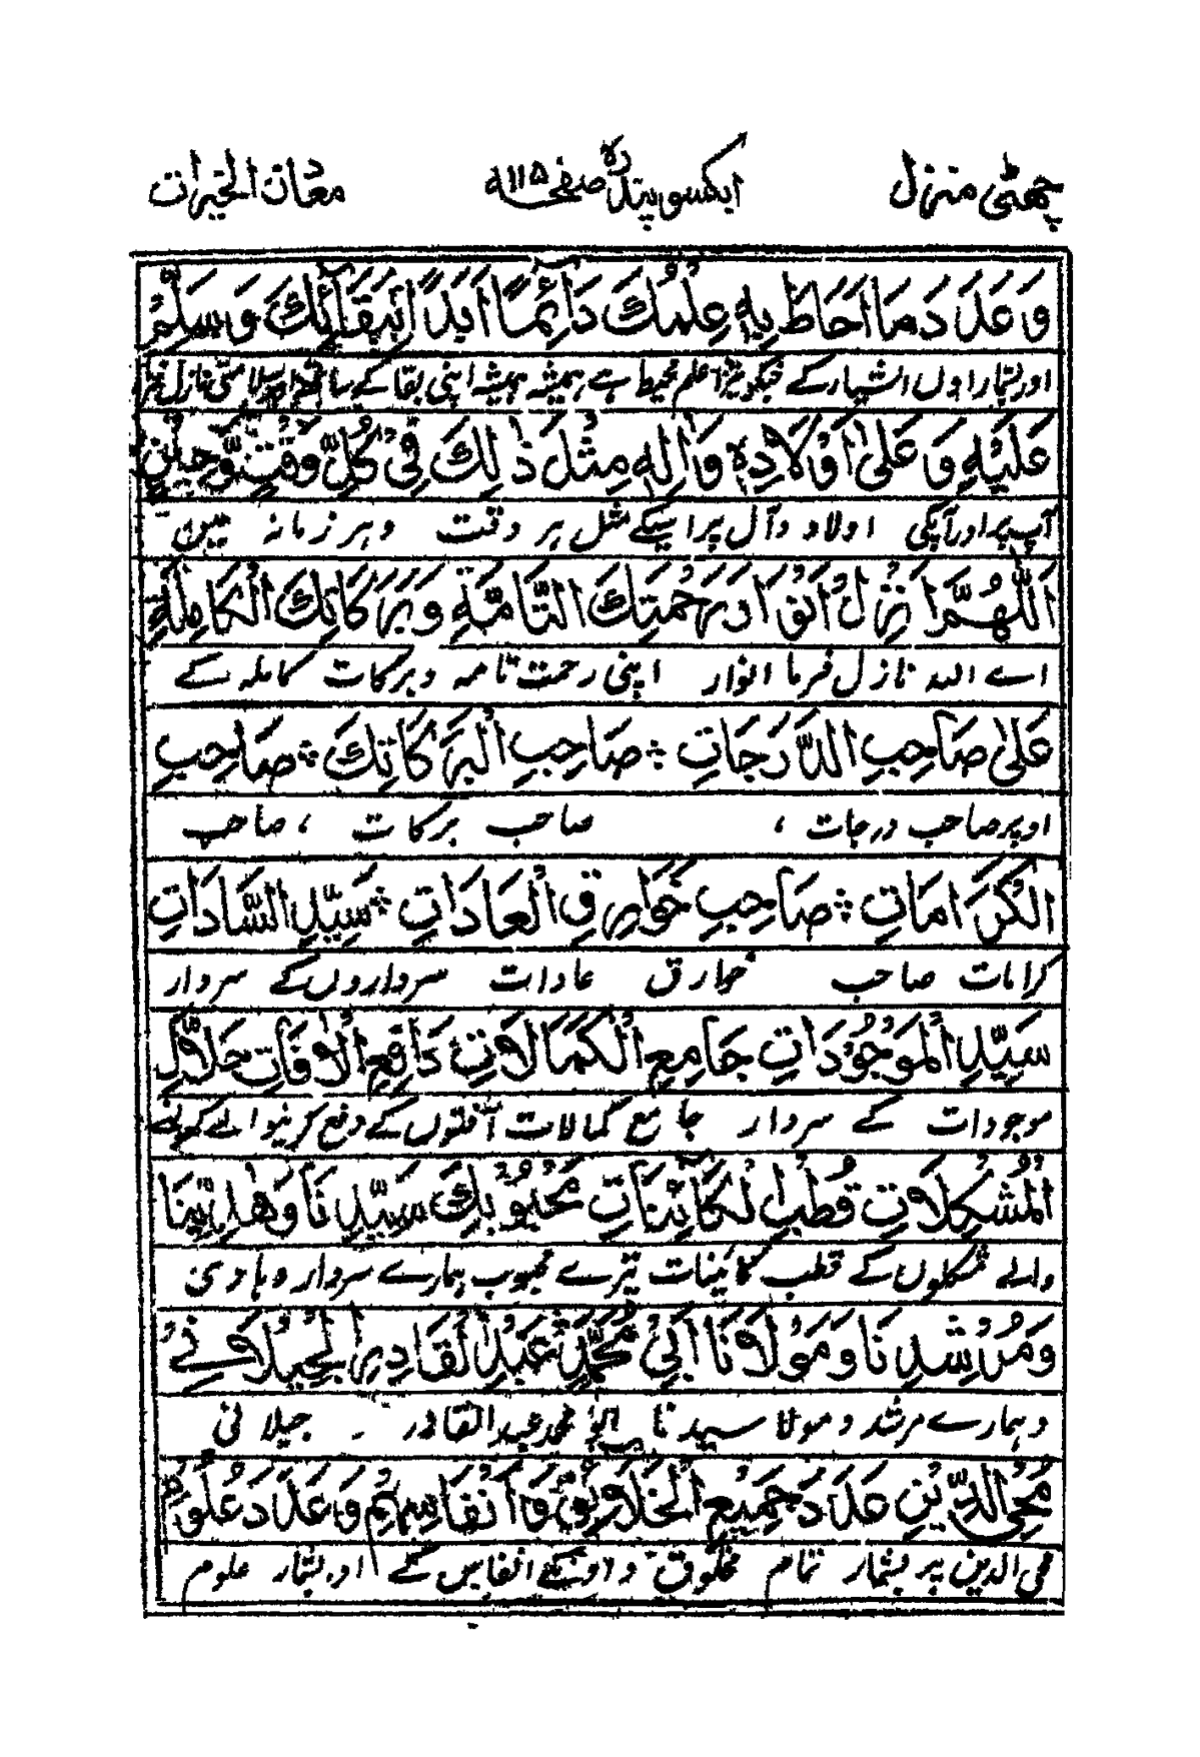 چھٹی منزل ایکسو پندرہ صفحہ ۱۱۵ معدن الخیرات
وَعَدَدَ مَا اَحَاطَ بِهٖ عِلْمُكَ دَآئِمًا اَبَدًا اَبْقَآئِكَ وَسَلِّمْ
اور بشمار اون اشیار کے علم محیط ہے ہمیشہ ہمیشہ اپنی بقا کے سلامتی نازل
عَلَيْهِ وَعَلٰى اَوْلَادِهٖ وَاٰلِهٖ مِثْلَ ذٰلِكَ فِىْ كُلِّ وَقْتٍ وَّحِيْنٍ
آپ پر اور آپکی اولاد وآل پر اسیکے مثل ہر وقت وہر زمانہ میں
اَللّٰهُمَّ اَنْزِلْ اَنْوَارَ رَحْمَتِكَ التَّامَّةِ وَبَرَكَاتِكَ الْكَامِلَةِ
اے اللہ نازل فرما انوار اپنی رحمت تامہ وبرکات کاملہ کے
عَلٰى صَاحِبِ الدَّرَجَاتِ ؞ صَاحِبِ الْبَرَكَاتِكَ ؞ صَاحِبِ
اوپر صاحب درجات ، صاحب برکات ، صاحب
الْكَرَامَاتِ ؞ صَاحِبِ خَوَارِقِ الْعَادَاتِ ؞ سَيِّدِ السَّادَاتِ
کرامات صاحب خوارق عادات سرداروں کے سردار
سَيِّدِ الْمَوْجُوْدَاتِ جَامِعِ الْكَمَالَاتِ دَافِعِ الْاٰفَاتِ حَلَّالِ
موجودات کے سردار جامع کمالات آفتوں کے دفع کرنیوالے
الْمُشْكِلَاتِ قُطْبِ الْكَآئِنَاتِ مَحْبُوْبِكَ سَيِّدِنَا وَهَادِيْنَا
والے مشکلوں کے قطب کائینات تیرے محبوب ہمارے سردار وہادی
وَمُرْشِدِنَا وَمَوْلَانَا اَبِىْ مُحَمَّدٍ عَبْدِ الْقَادِرِ الْجِيْلَانِىْ
وہمارے مرشد و مولا سیدنا ابو محمد عبد القادر جیلانی
مُحِىِّ الدِّيْنِ عَدَدَ جَمِيْعِ الْخَلَآئِقِ وَاَنْفَاسِهِمْ وَعَدَدَ عُلُوْمِ
محی الدین پر بشمار تمام مخلوق و اونکے انفاس کے اور بشمار علوم